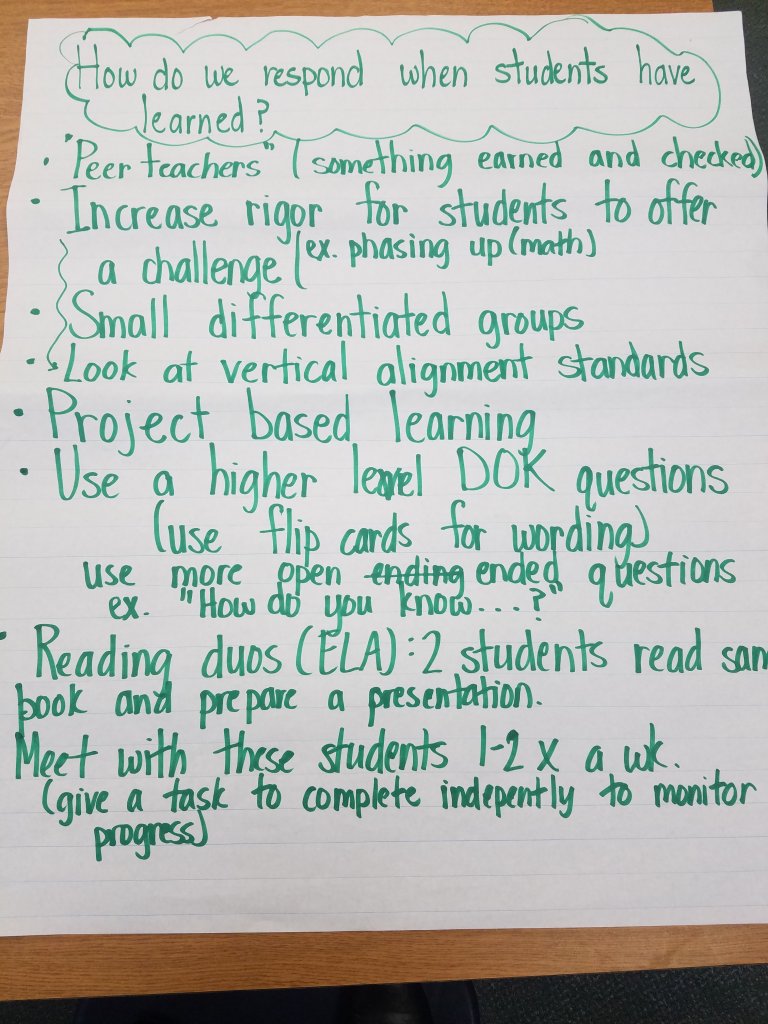 How do we respond when students have
learned?
• "Peer teachers" (something earned and checked)
• Increase rigor for students to offer
a challenge (ex. phasing up (math)
• Small differentiated groups
• Look at vertical alignment standards
• Project based learning
• Use a higher level DOK questions
(use flip cards for wording)
use more open ending ended questions
ex. "How do you know...?"
• Reading duos (ELA): 2 students read sam
book and prepare a presentation.
Meet with these students 1-2 x a wk.
(give a task to complete indepently to monitor
progress)